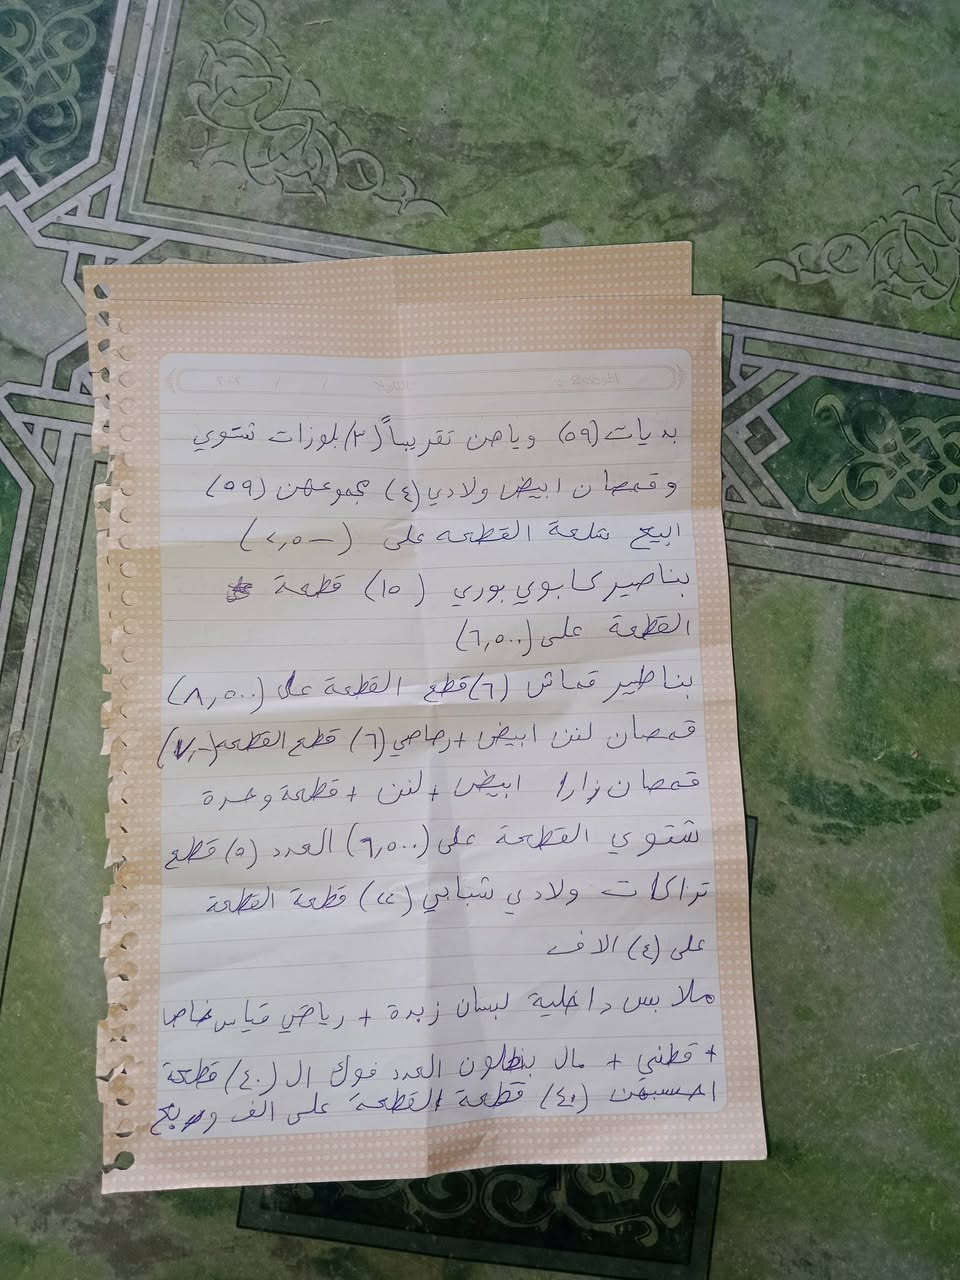 بديات (٥٩) وياهن تقريباً (٣) بلوزات شتوي
وقمصان ابيض ولادي (٤) مجموعهن (٥٩)
البيع شلعة القطعه على (٢,٥٠٠)
بناصير كابوي بوري (١٥) قطعة
القطعة على (٦,٥٠٠)
بناطير قماش (٦) قطع القطعة على (٨,٥٠٠)
قمصان لنن ابيض + رصاصي (٦) قطع القطعه
قمصان زارا ابيض + لنن + قطعة وحدة
شتوي القطعة على (٦,٥٠٠) العدد (٥) قطع
تراكات ولادي شبابي (٢٢) قطعة القطعة
على (٤) الاف
ملابس داخلية لبسان زبدة + رياضي قياس خاص
+ قطني + مال بنطلون العدد فوك ال (٤٠) قطعة
احسبهن (٤٠) قطعة القطعة على الف وربع